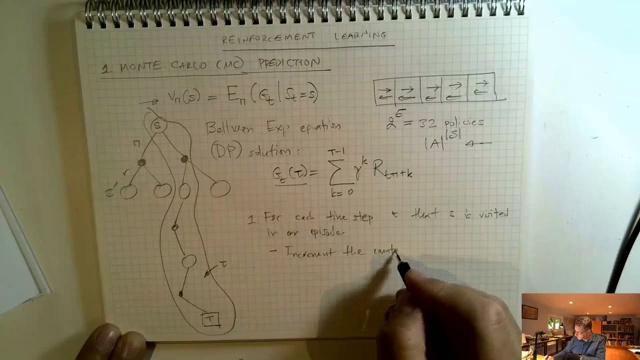 REINFORCEMENT LEARNING
1. MONTE CARLO (MC) PREDICTION
→ v_π(s) = E_π(G_t | S_t = s)
S
Bellman Exp. equation
2^5 = 32 policies
|A|^|S| ←
π
(DP) solution:
r
s'
G_t(τ) = Σ_{k=0}^{T-1} γ^k R_{t+1+k}
1. For each time step t that s is visited
in an episode
- Increment the counte
τ
T